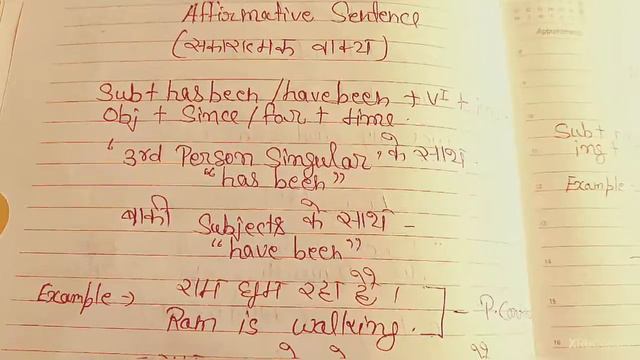 Affirmative Sentence
(सकारात्मक वाक्य)
Sub + has been / have been + VI +
Obj + Since / for + time.
"3rd Person Singular" के साथ
"has been"
बाकी Subjects के साथ -
"have been"
Example → राम घुम रहा है ।
Ram is walking.
Sub +
ing +
Example